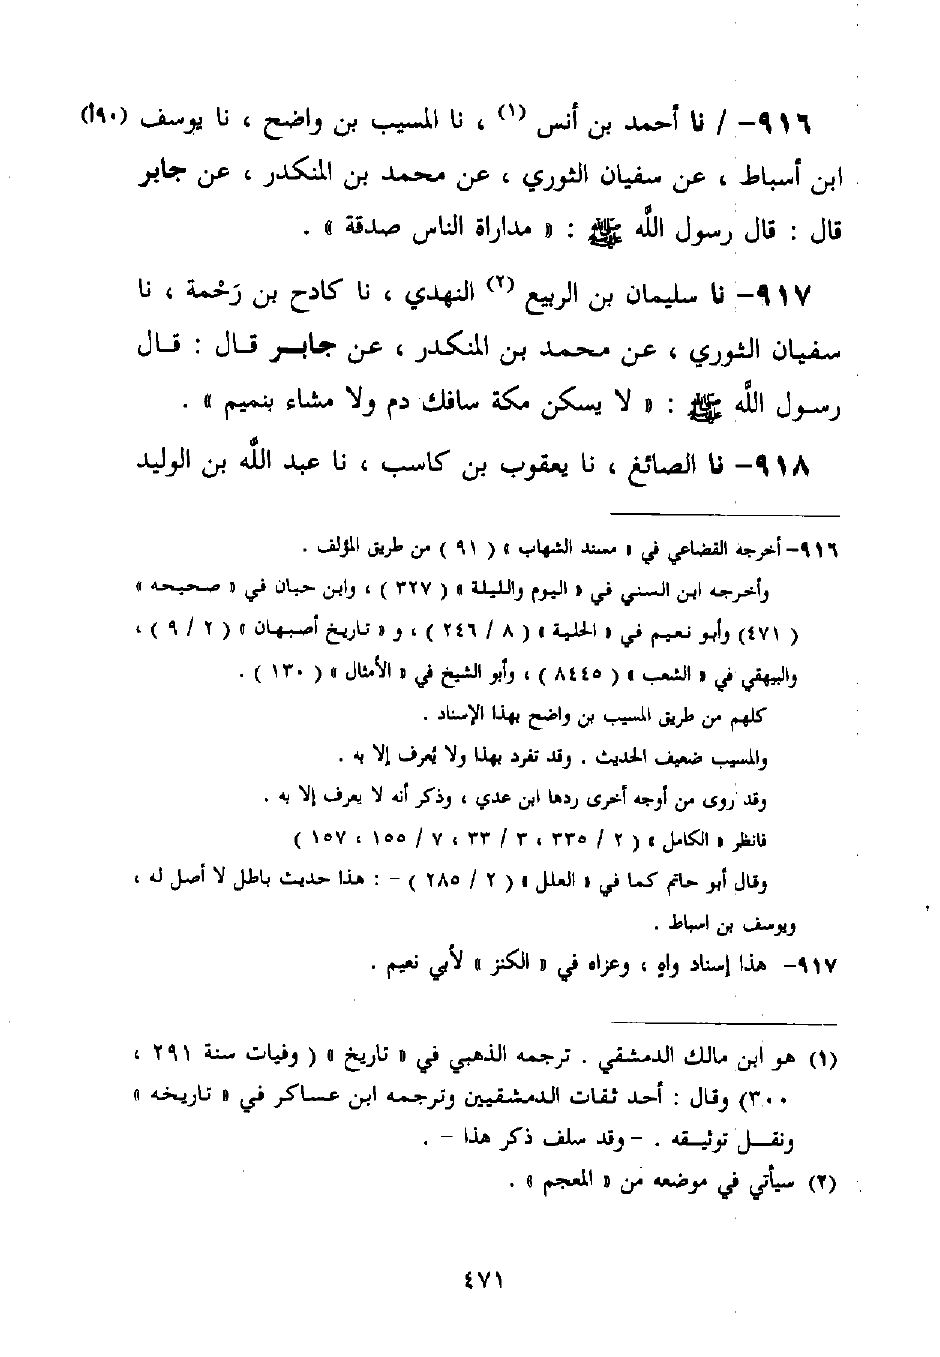 ٩١٦- / نا أحمد بن أنس (١) ، نا المسيب بن واضح ، نا يوسف (٩٠أ)
ابن أسباط ، عن سفيان الثوري ، عن محمد بن المنكدر ، عن جابر
قال : قال رسول اللَّه ﷺ : « مداراة الناس صدقة » .
٩١٧- نا سليمان بن الربيع (٢) النهدي ، نا كادح بن رَحْمة ، نا
سفيان الثوري ، عن محمد بن المنكدر ، عن جابر قال : قال
رسول اللَّه ﷺ : « لا يسكن مكة سافك دم ولا مشاء بنميم » .
٩١٨- نا الصائغ ، نا يعقوب بن كاسب ، نا عبد اللَّه بن الوليد
٩١٦- أخرجه القضاعي في « مسند الشهاب » ( ٩١ ) من طريق المؤلف .
وأخرجه ابن السني في « اليوم والليلة » ( ٣٢٧ ) ، وابن حبان في « صحيحه »
( ٤٧١) وأبو نعيم في « الحلية » ( ٨ / ٢٤٦ ) ، و « تاريخ أصبهان » ( ٢ / ٩ ) ،
والبيهقي في « الشعب » ( ٨٤٤٥ ) ، وأبو الشيخ في « الأمثال » ( ١٣٠ ) .
كلهم من طريق المسيب بن واضح بهذا الإسناد .
والمسيب ضعيف الحديث . وقد تفرد بهذا ولا يُعرف إلا به .
وقد روى من أوجه أخرى ردها ابن عدي ، وذكر أنه لا يعرف إلا به .
فانظر « الكامل » ( ٢ / ٣٣٥ ، ٣ / ٣٣ ، ٧ / ١٥٥ ، ١٥٧ )
وقال أبو حاتم كما في « العلل » ( ٢ / ٢٨٥ ) - : هذا حديث باطل لا أصل له ،
ويوسف بن اسباط .
٩١٧- هذا إسناد واهٍ ، وعزاه في « الكنز » لأبي نعيم .
(١) هو ابن مالك الدمشقي . ترجمه الذهبي في « تاريخ » ( وفيات سنة ٢٩١ ،
٣٠٠) وقال : أحد ثقات الدمشقيين وترجمه ابن عساكر في « تاريخه »
ونقل توثيقه . - وقد سلف ذكر هذا - .
(٢) سيأتي في موضعه من « المعجم » .
٤٧١